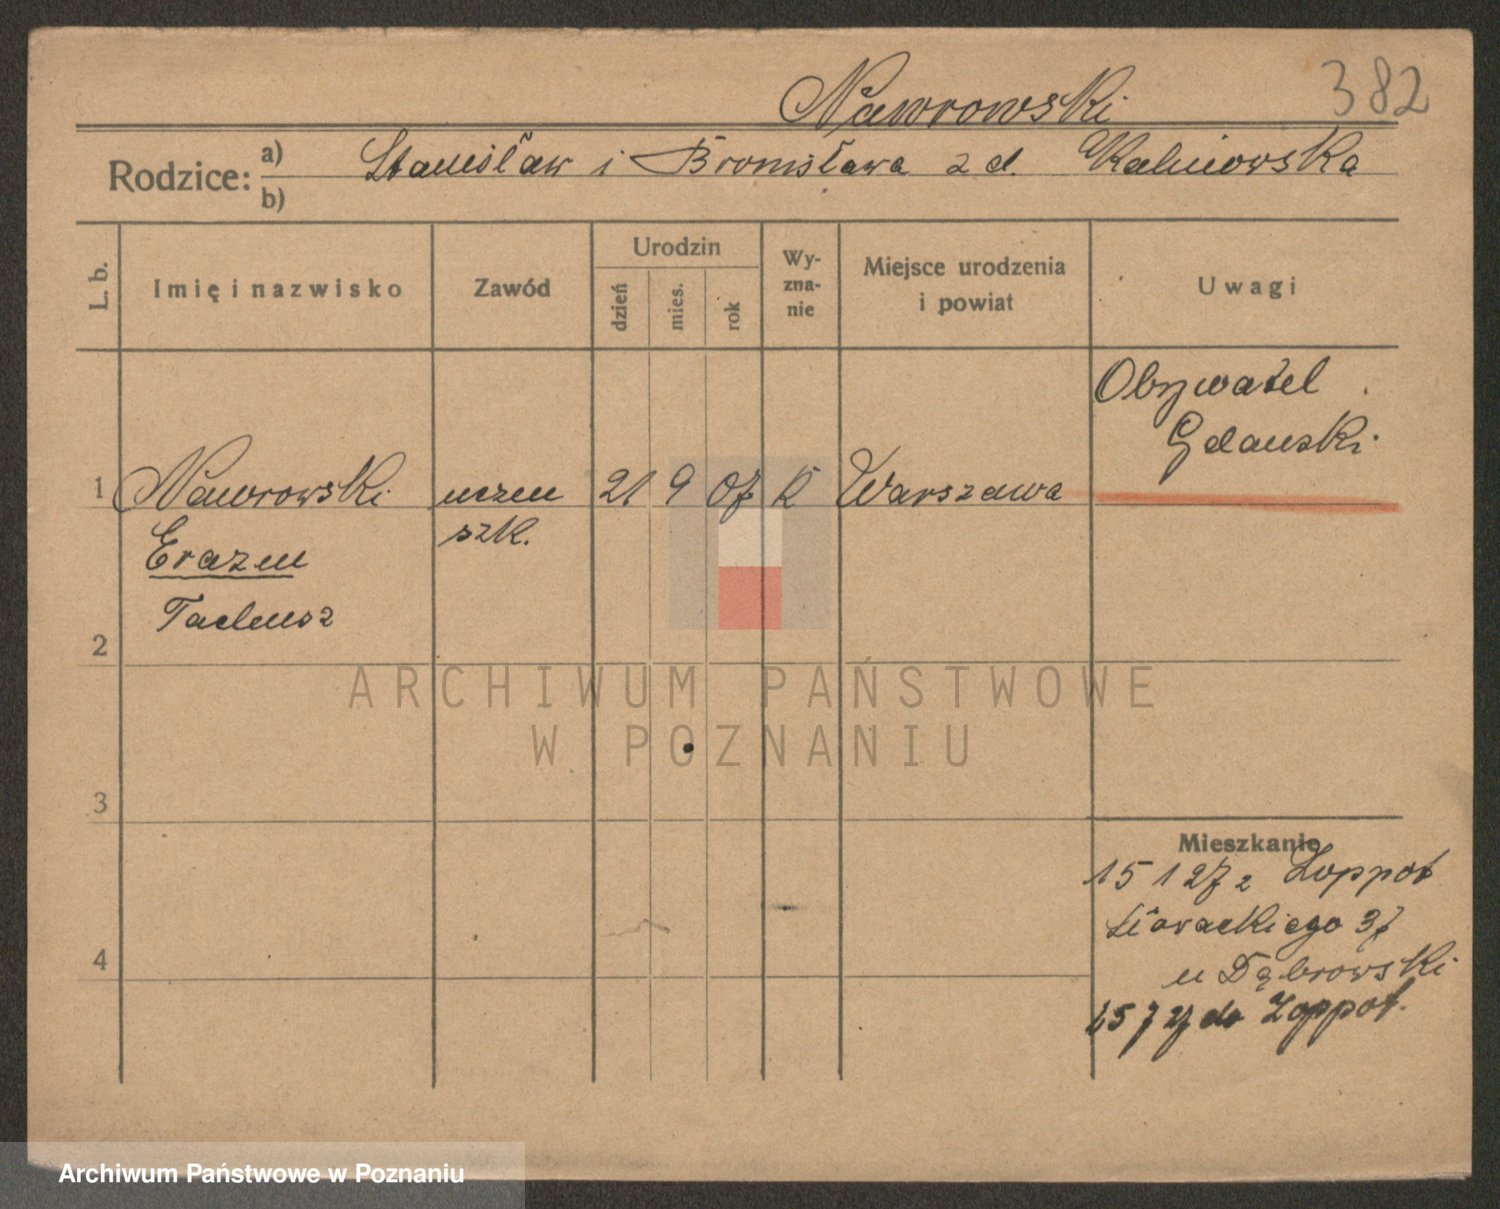 382
Nawrowski
Rodzice: a) b) Stanisław i Bronisława z d. Kalinowska
L. b.
Imię i nazwisko
Zawód
Urodzin
dzień
mies.
rok
Wy-
zna-
nie
Miejsce urodzenia
i powiat
Uwagi
Obywatel
Gdański
1 Nawrowski uczeń 21 9 07 K Warszawa
szk.
Erazm
Tadeusz
2
ARCHIWUM PAŃSTWOWE
W POZNANIU
3
Mieszkanie
15 1 27 z Zoppot
37
4
u Dąbrowski
15 7 27 do Zoppot.
Archiwum Państwowe w Poznaniu